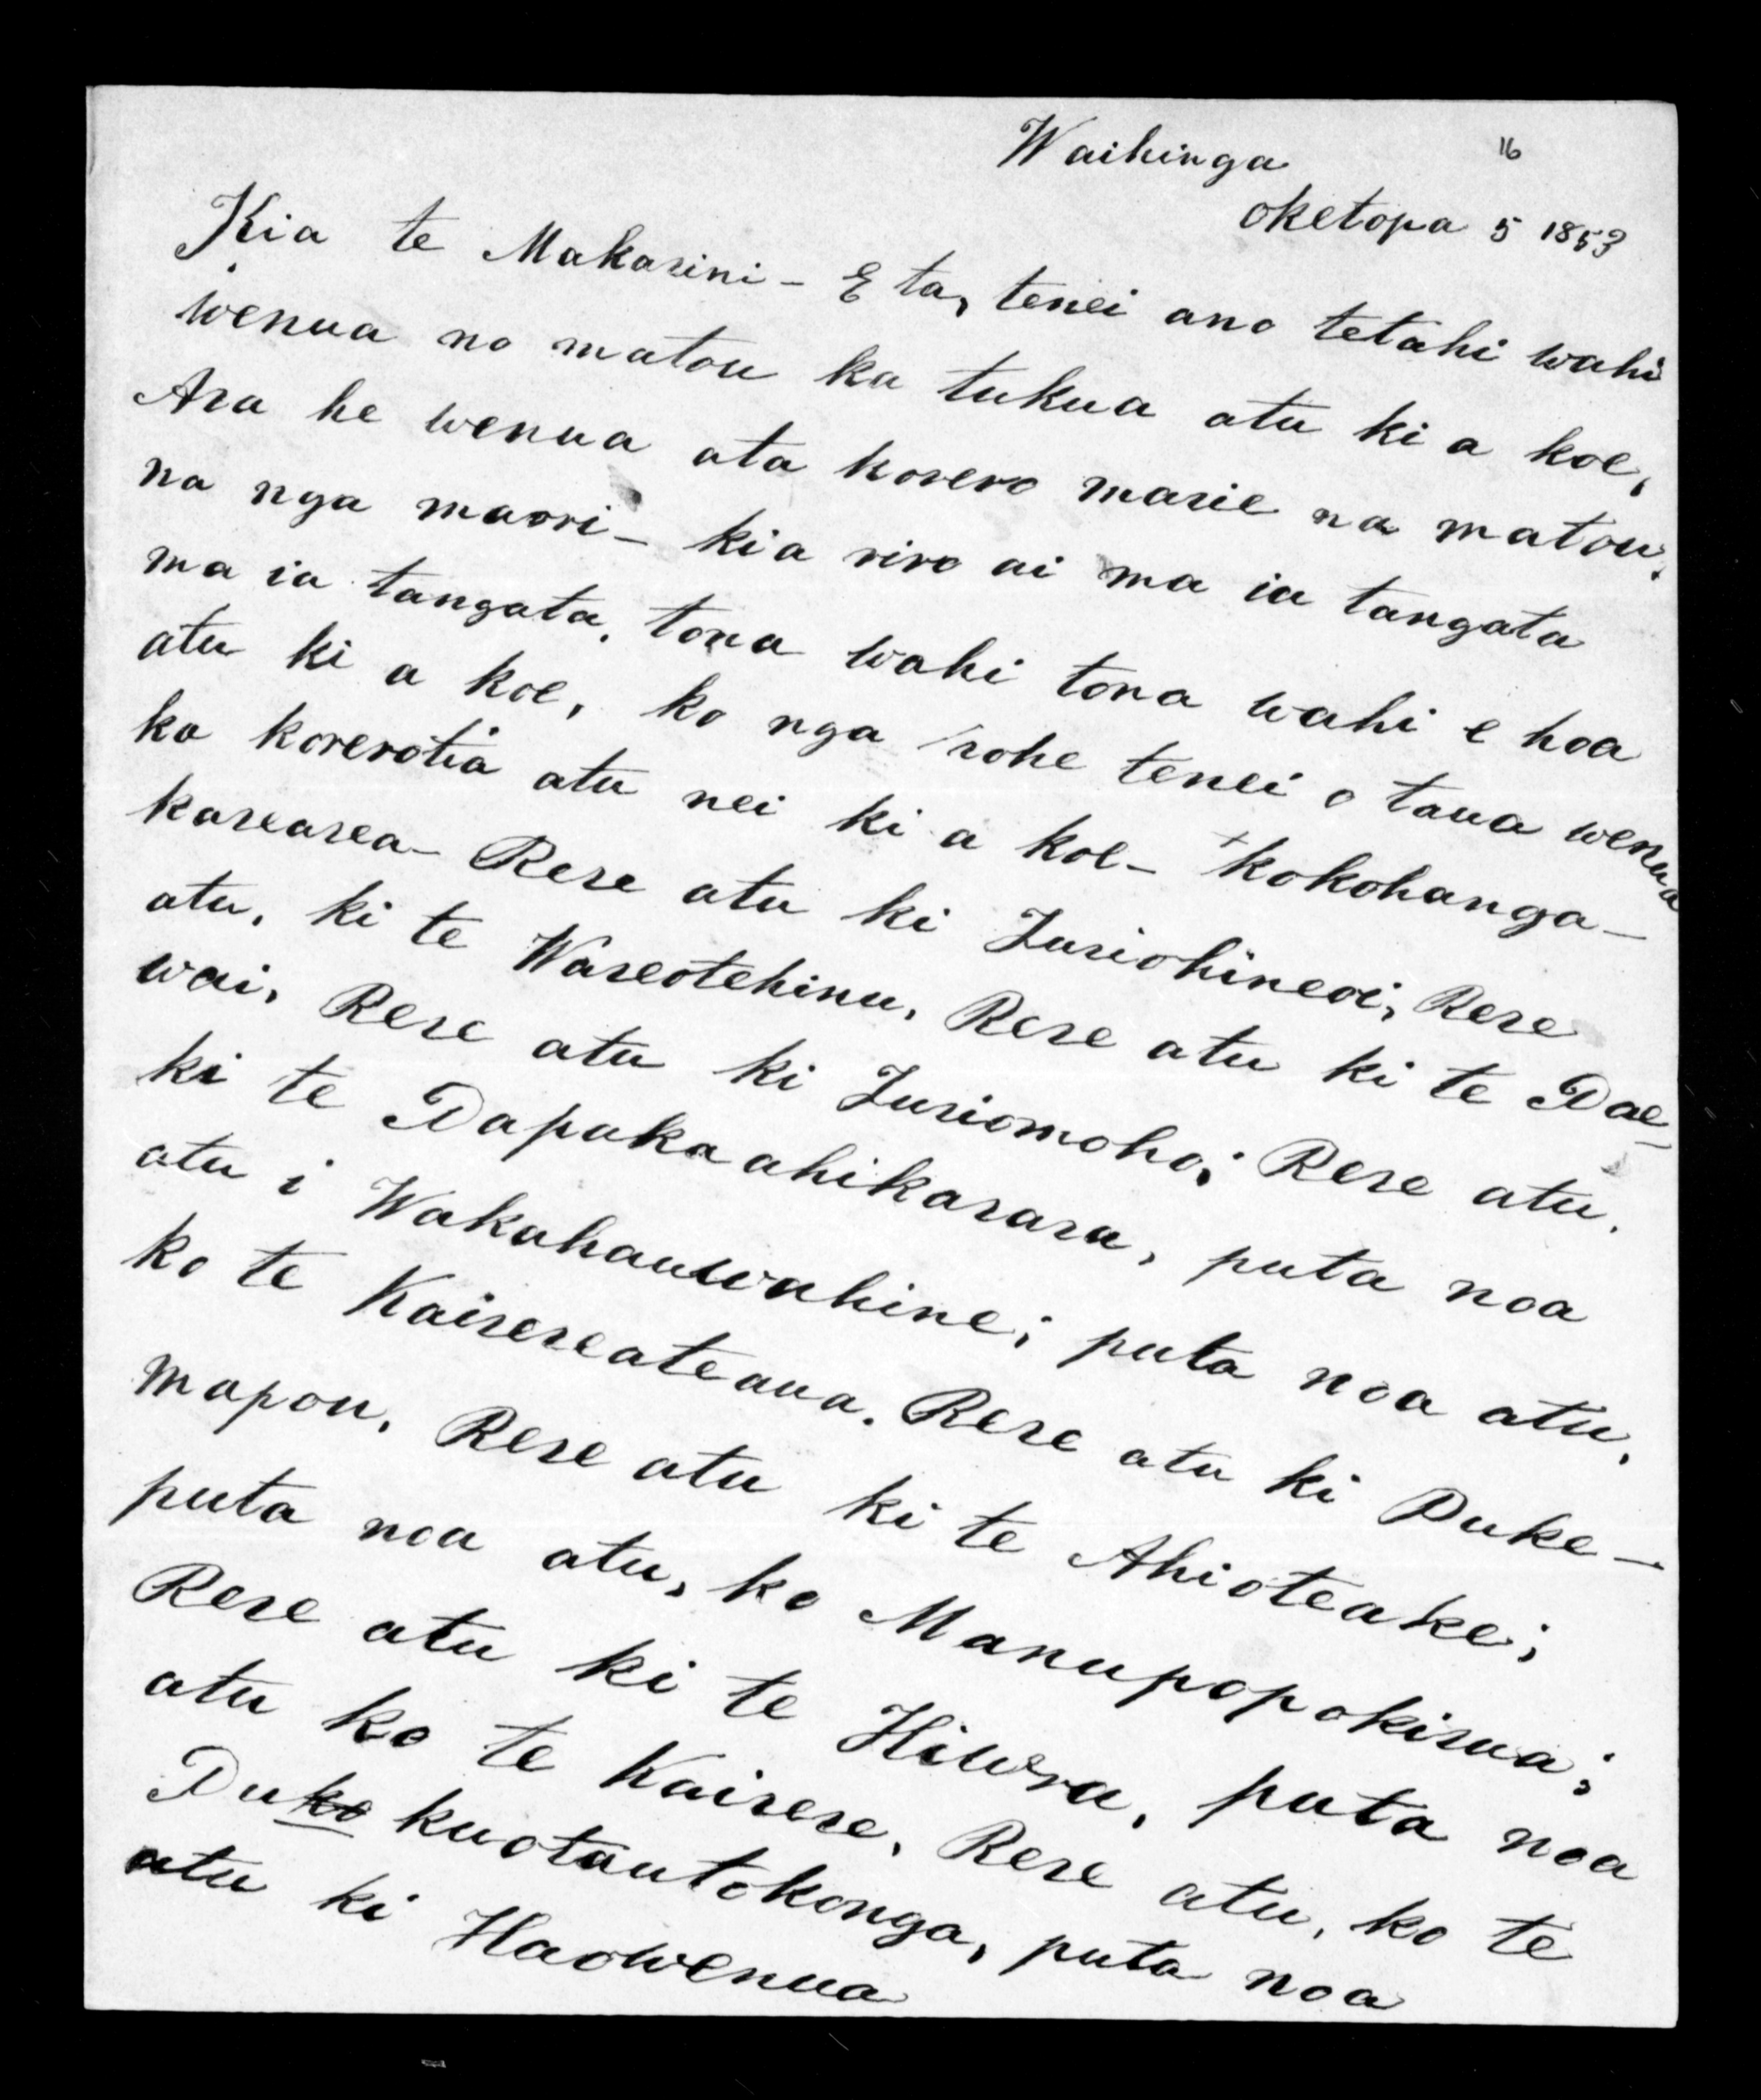 Waihinga 16
Oketopa 5 1853
Kia te Makarini - E ta, tenei ano tetahi wahi
wenua no matou ka tukua atu ki a koe,
Ara he wenua ata korero marie na matou.
na nga maori - kia riro ai ma ia tangata
ma ia tangata, tona wahi tona wahi e hoa
atu ki a koe, ko nga rohe tenei o taua wenua
ka korerotia atu nei ki a koe - + Kokohanga-
karearea - Rere atu ki Turiohineoi, Rere
atu, ki te Wareotehinu, Rere atu ki te Pae-
wai, Rere atu ki Turiomoho; Rere atu.
ki te Papukaahikarara, puta noa
atu i Wakahauwahine; puta noa atu,
ko te Kairereateaua. Rere atu ki Puke-
mapou, Rere atu ki te Ahioteake;
puta noa atu, ko Manupopokirua;
Rere atu ki te Hiwera, puta noa
atu ko te Kairere, Rere atu, ko te
Puko kuotautokonga, puta noa
atu ki Haowenua